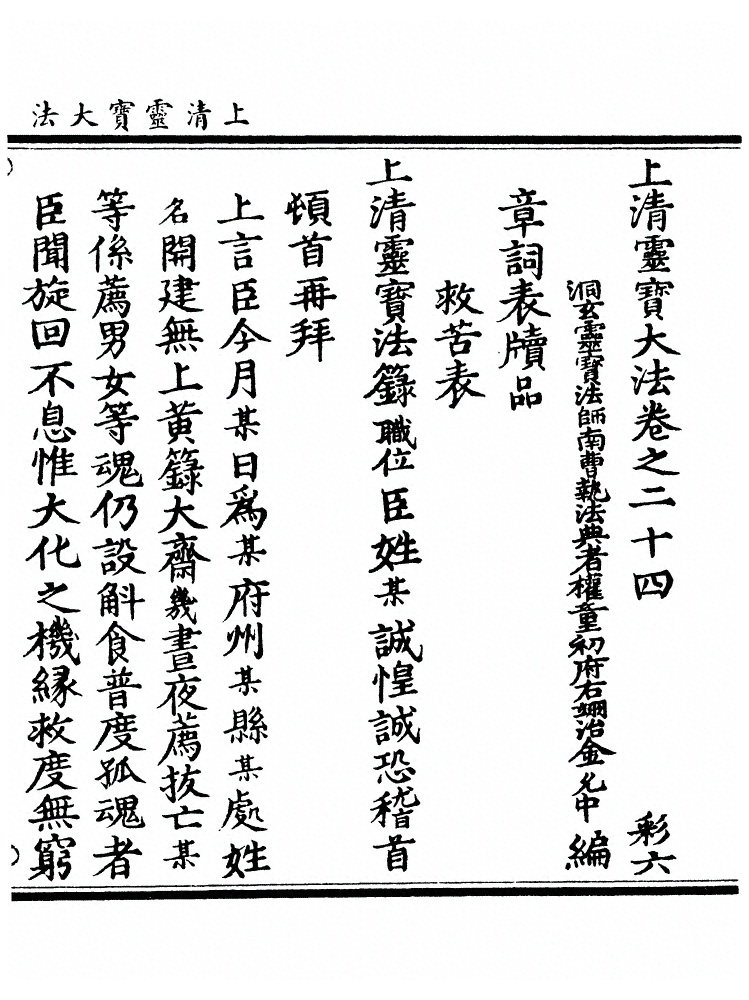 上清靈寶大法
上清靈寶大法卷之二十四 彩六
洞玄靈寶法師南曹執法典者權童初府右翊治金允中編
章詞表牘品
救苦表
上清靈寶法籙職位臣姓某誠惶誠恐稽首
頓首再拜
上言臣今月某日爲某府州某縣某處姓
名開建無上黃籙大齋幾晝夜薦拔亡某
等係薦男女等魂仍設斛食普度孤魂者
臣聞旋回不息惟大化之機緣救度無窮